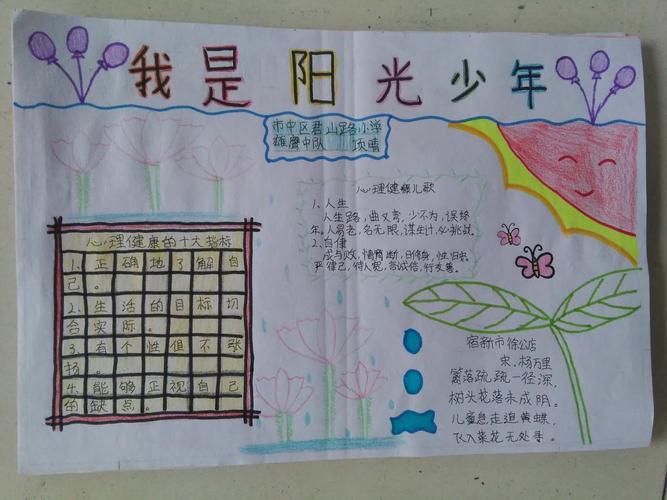 我是阳光少年
市中区君山路小学
雄鹰中队 项晴
心理健康儿歌
1、人生
人生路,曲又弯,少不为,误终
年。人易老,名无限,谋生计,必挑战。
2、自律
成与败,情商断,日修身,性归宗,
严律己,待人宽,言诚信,行友善。
心理健康的十大指标
1、正确地了解自
己。
2、生活的目标切
合实际。
3、有个性但不张
扬。
4、能够正视自己
的缺点。
宿新市徐公店
宋、杨万里
篱落疏疏一径深,
树头花落未成阴。
儿童急走追黄蝶,
飞入菜花无处寻。